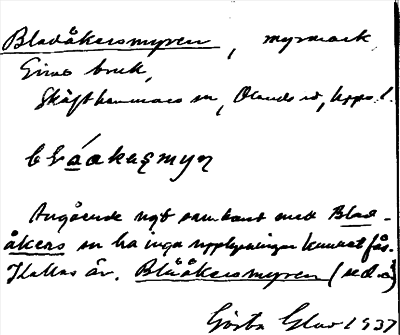 Bladåkersmyren, myrmark,
Gimo bruk,
Skäfthammars sn, Olands hd, Upps. l.
Angående ngt samband med Blad-
åkers sn ha inga upplysningar kunnat fås.
Kallas äv. Blååkersmyren (se d.o.)
Gösta 1937